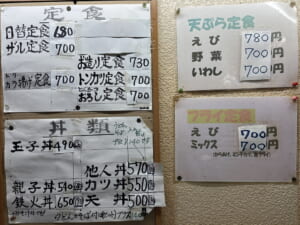 定食
日替定食 630
ザル定食 700
お造り定食 730
カラ揚げ定食 700
トンカツ定食 700
おろし定食 700
丼類
玉子丼 490
他人丼 570
親子丼 510
カツ丼 550
鉄火丼 650
天丼 500
天ぷら定食
えび 780円
野菜 700円
いわし 700円
フライ定食
えび 700円
ミックス 700円